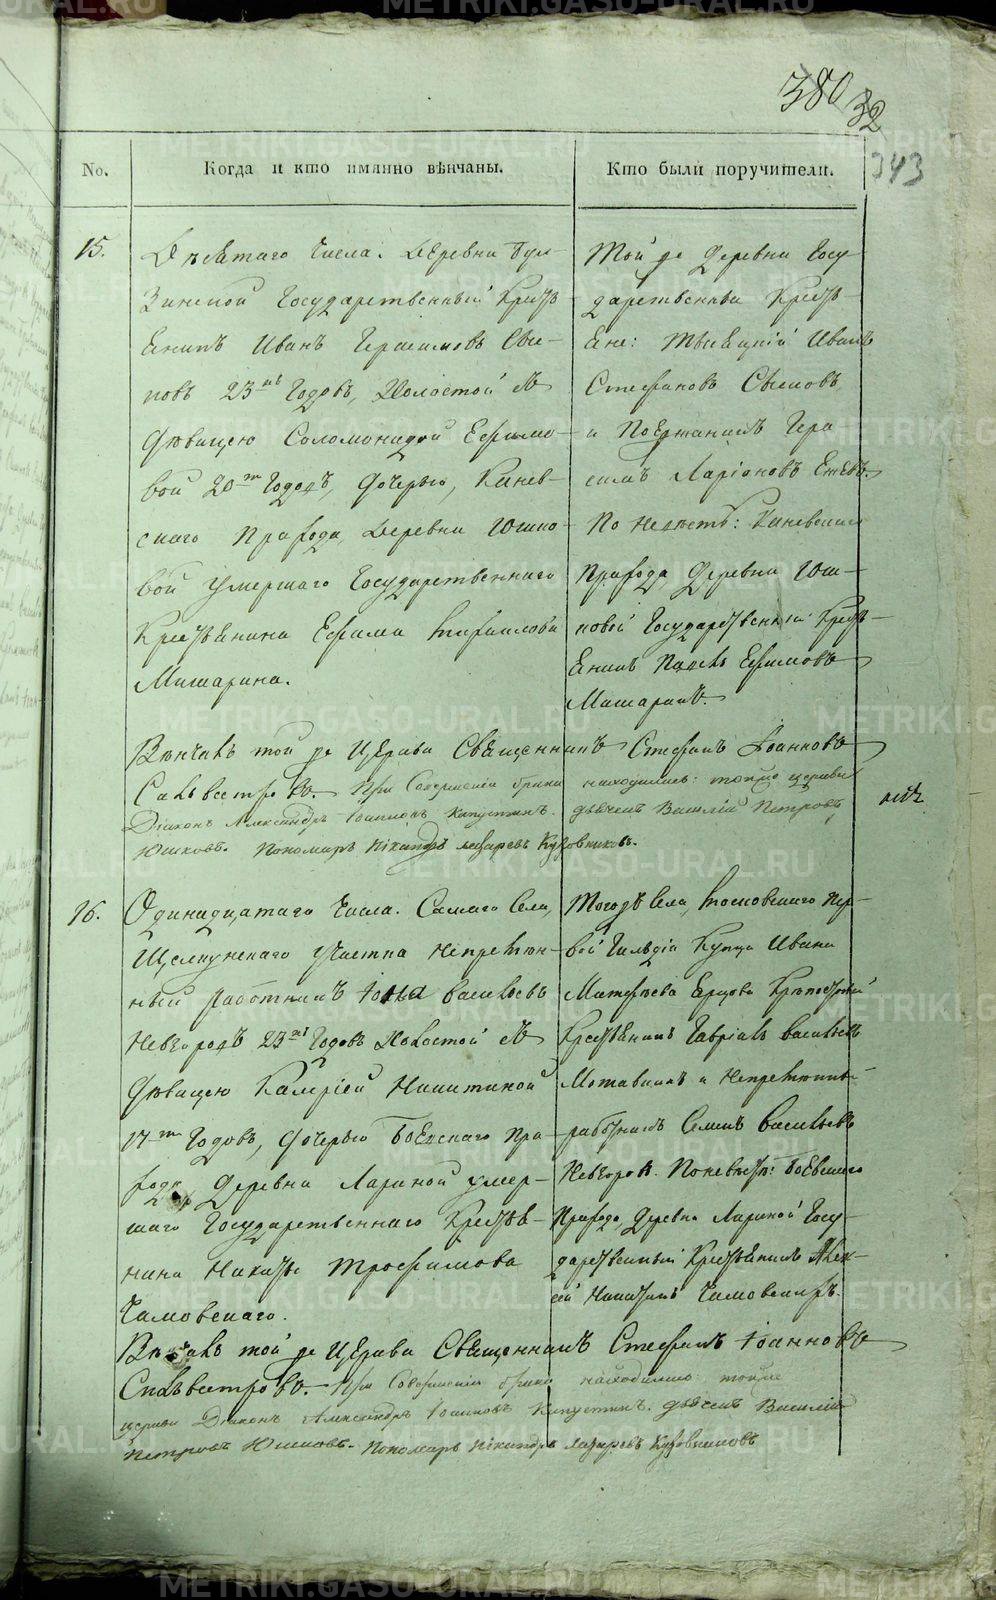 METRIKI.GASO-URAL.RU
380
32
343
No.
Когда и кто имянно вѣнчаны.
Кто были поручители.
15.
Девятаго Числа. Деревни Бул-
зинской Государственный Кресть
янинъ Иванъ Герасимовъ Сы-
новъ 23хъ Годовъ, Холостой съ
Дѣвицею Соломонидой Ефимо-
вой 20ти Годовъ, Дочерью,
скаго Прихода, Деревни Юшко-
вой умершаго Государственнаго
Крестьянина Ефима Кирилова
Мишарина.
Той же Деревни Госу-
дарственныи Кресть-
яне: Иванъ
Стефановъ
и По Ера
симъ Ларіоновъ
По невѣстѣ:
Прихода Деревни Юш-
ковой Государственный Кресть-
янинъ Ефимовъ
Мишаринъ.
Вѣнчалъ той же Церкви Священникъ Стефанъ Іоанновъ
Сильвестровъ. При Совершеніи брака находились: тойже церкви
Діаконъ Александръ Іоанновъ Капустинъ. дьячекъ Василій Петровъ
Юшковъ. Пономарь Никандръ Лазаревъ Кузовниковъ.
16.
Одинадцатаго Числа. Самаго Села
Щелкунскаго участка Непремѣн-
ный работникъ Іона Васильевъ
23хъ Годовъ Холостой съ
Дѣвицею Валеріей Никитиной
17ти Годовъ, Дочерью Боевскаго При-
хода Деревни Лариной умер-
шаго Государственнаго Крестья-
нина Никиты Трофимова
Тогожъ Села, Московскаго Пер-
вой Гильдіи Купца Ивана
Матвѣева Крѣпостный
Крестьянинъ Гавріилъ Васильевъ
и Непремѣнный
работникъ Семенъ Васильевъ
По невѣстѣ: Боевскаго
Прихода, Деревни Лариной Госу-
дарственный Крестьянинъ Алек-
сѣй Никитинъ
Вѣнчалъ той же Церкви Священникъ Стефанъ Іоанновъ
Сильвестровъ. При Совершеніи брака находились тойже
церкви Діаконъ Александръ Іоанновъ Капустинъ. дьячекъ Василій
Петровъ Юшковъ. Пономарь Никандръ Лазаревъ Кузовниковъ